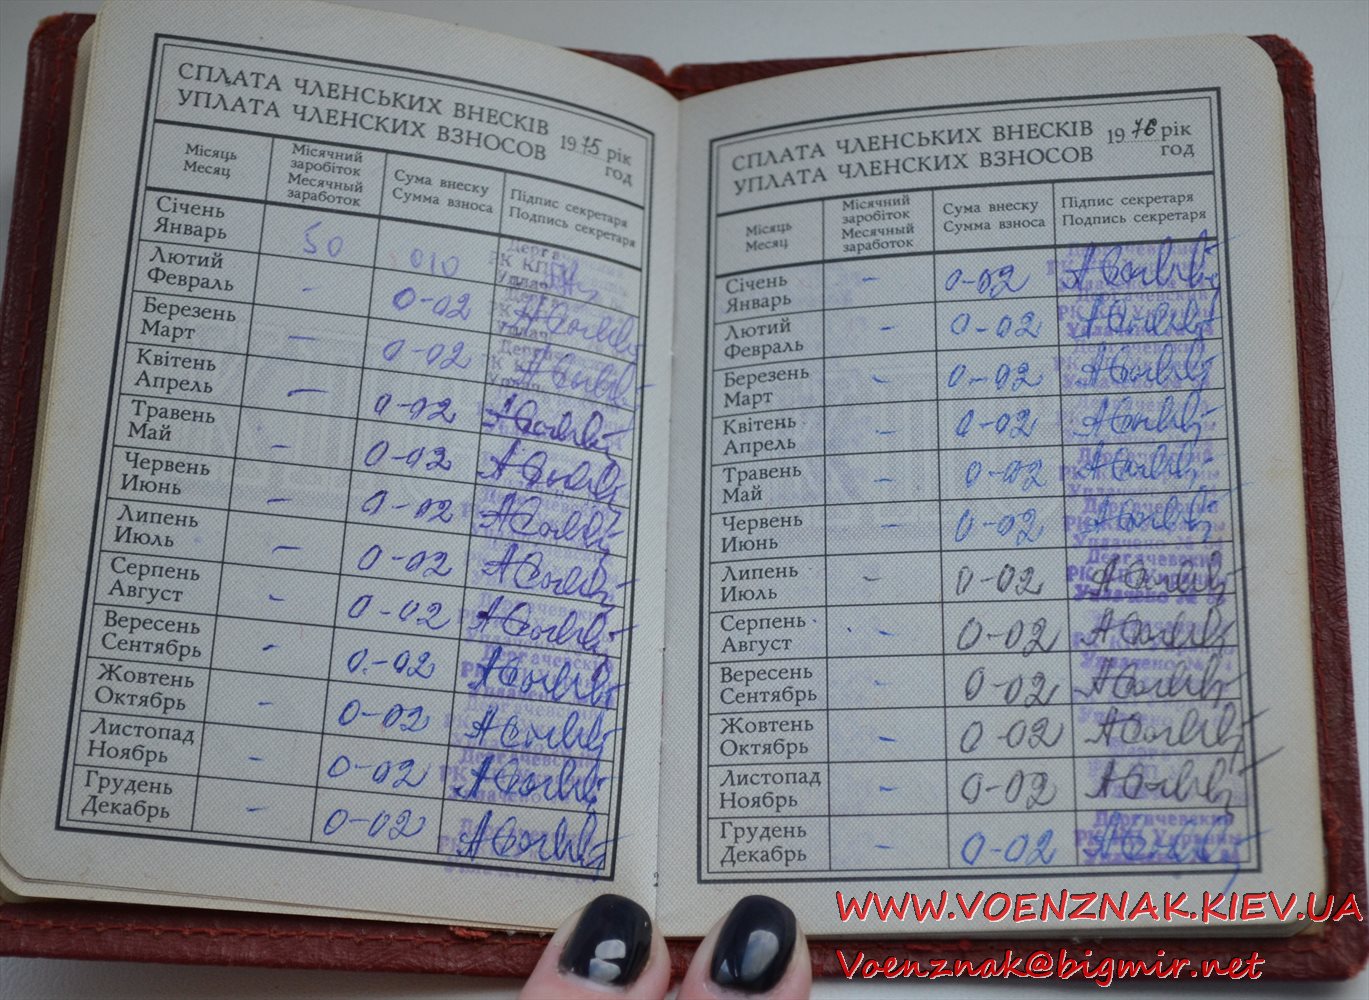 СПЛАТА ЧЛЕНСЬКИХ ВНЕСКІВ
УПЛАТА ЧЛЕНСКИХ ВЗНОСОВ
1975 рік
год
Місяць
Месяц
Місячний
заробіток
Месячный
заработок
Сума внеску
Сумма взноса
Підпис секретаря
Подпись секретаря
Січень
Январь
50
010
Лютий
Февраль
-
0-02
Березень
Март
-
0-02
Квітень
Апрель
-
0-02
Травень
Май
-
0-02
Червень
Июнь
-
0-02
Липень
Июль
-
0-02
Серпень
Август
-
0-02
Вересень
Сентябрь
-
0-02
Жовтень
Октябрь
-
0-02
Листопад
Ноябрь
-
0-02
Грудень
Декабрь
-
0-02
СПЛАТА ЧЛЕНСЬКИХ ВНЕСКІВ
УПЛАТА ЧЛЕНСКИХ ВЗНОСОВ
1976 рік
год
Місяць
Месяц
Місячний
заробіток
Месячный
заработок
Сума внеску
Сумма взноса
Підпис секретаря
Подпись секретаря
Січень
Январь
-
0-02
Лютий
Февраль
-
0-02
Березень
Март
-
0-02
Квітень
Апрель
-
0-02
Травень
Май
-
0-02
Червень
Июнь
-
0-02
Липень
Июль
-
0-02
Дергачевский
Серпень
Август
-
0-02
Вересень
Сентябрь
-
0-02
Жовтень
Октябрь
-
0-02
Листопад
Ноябрь
-
0-02
Грудень
Декабрь
-
0-02
Дергачевский
WWW.VOENZNAK.KIEV.UA
Voenznak@bigmir.net